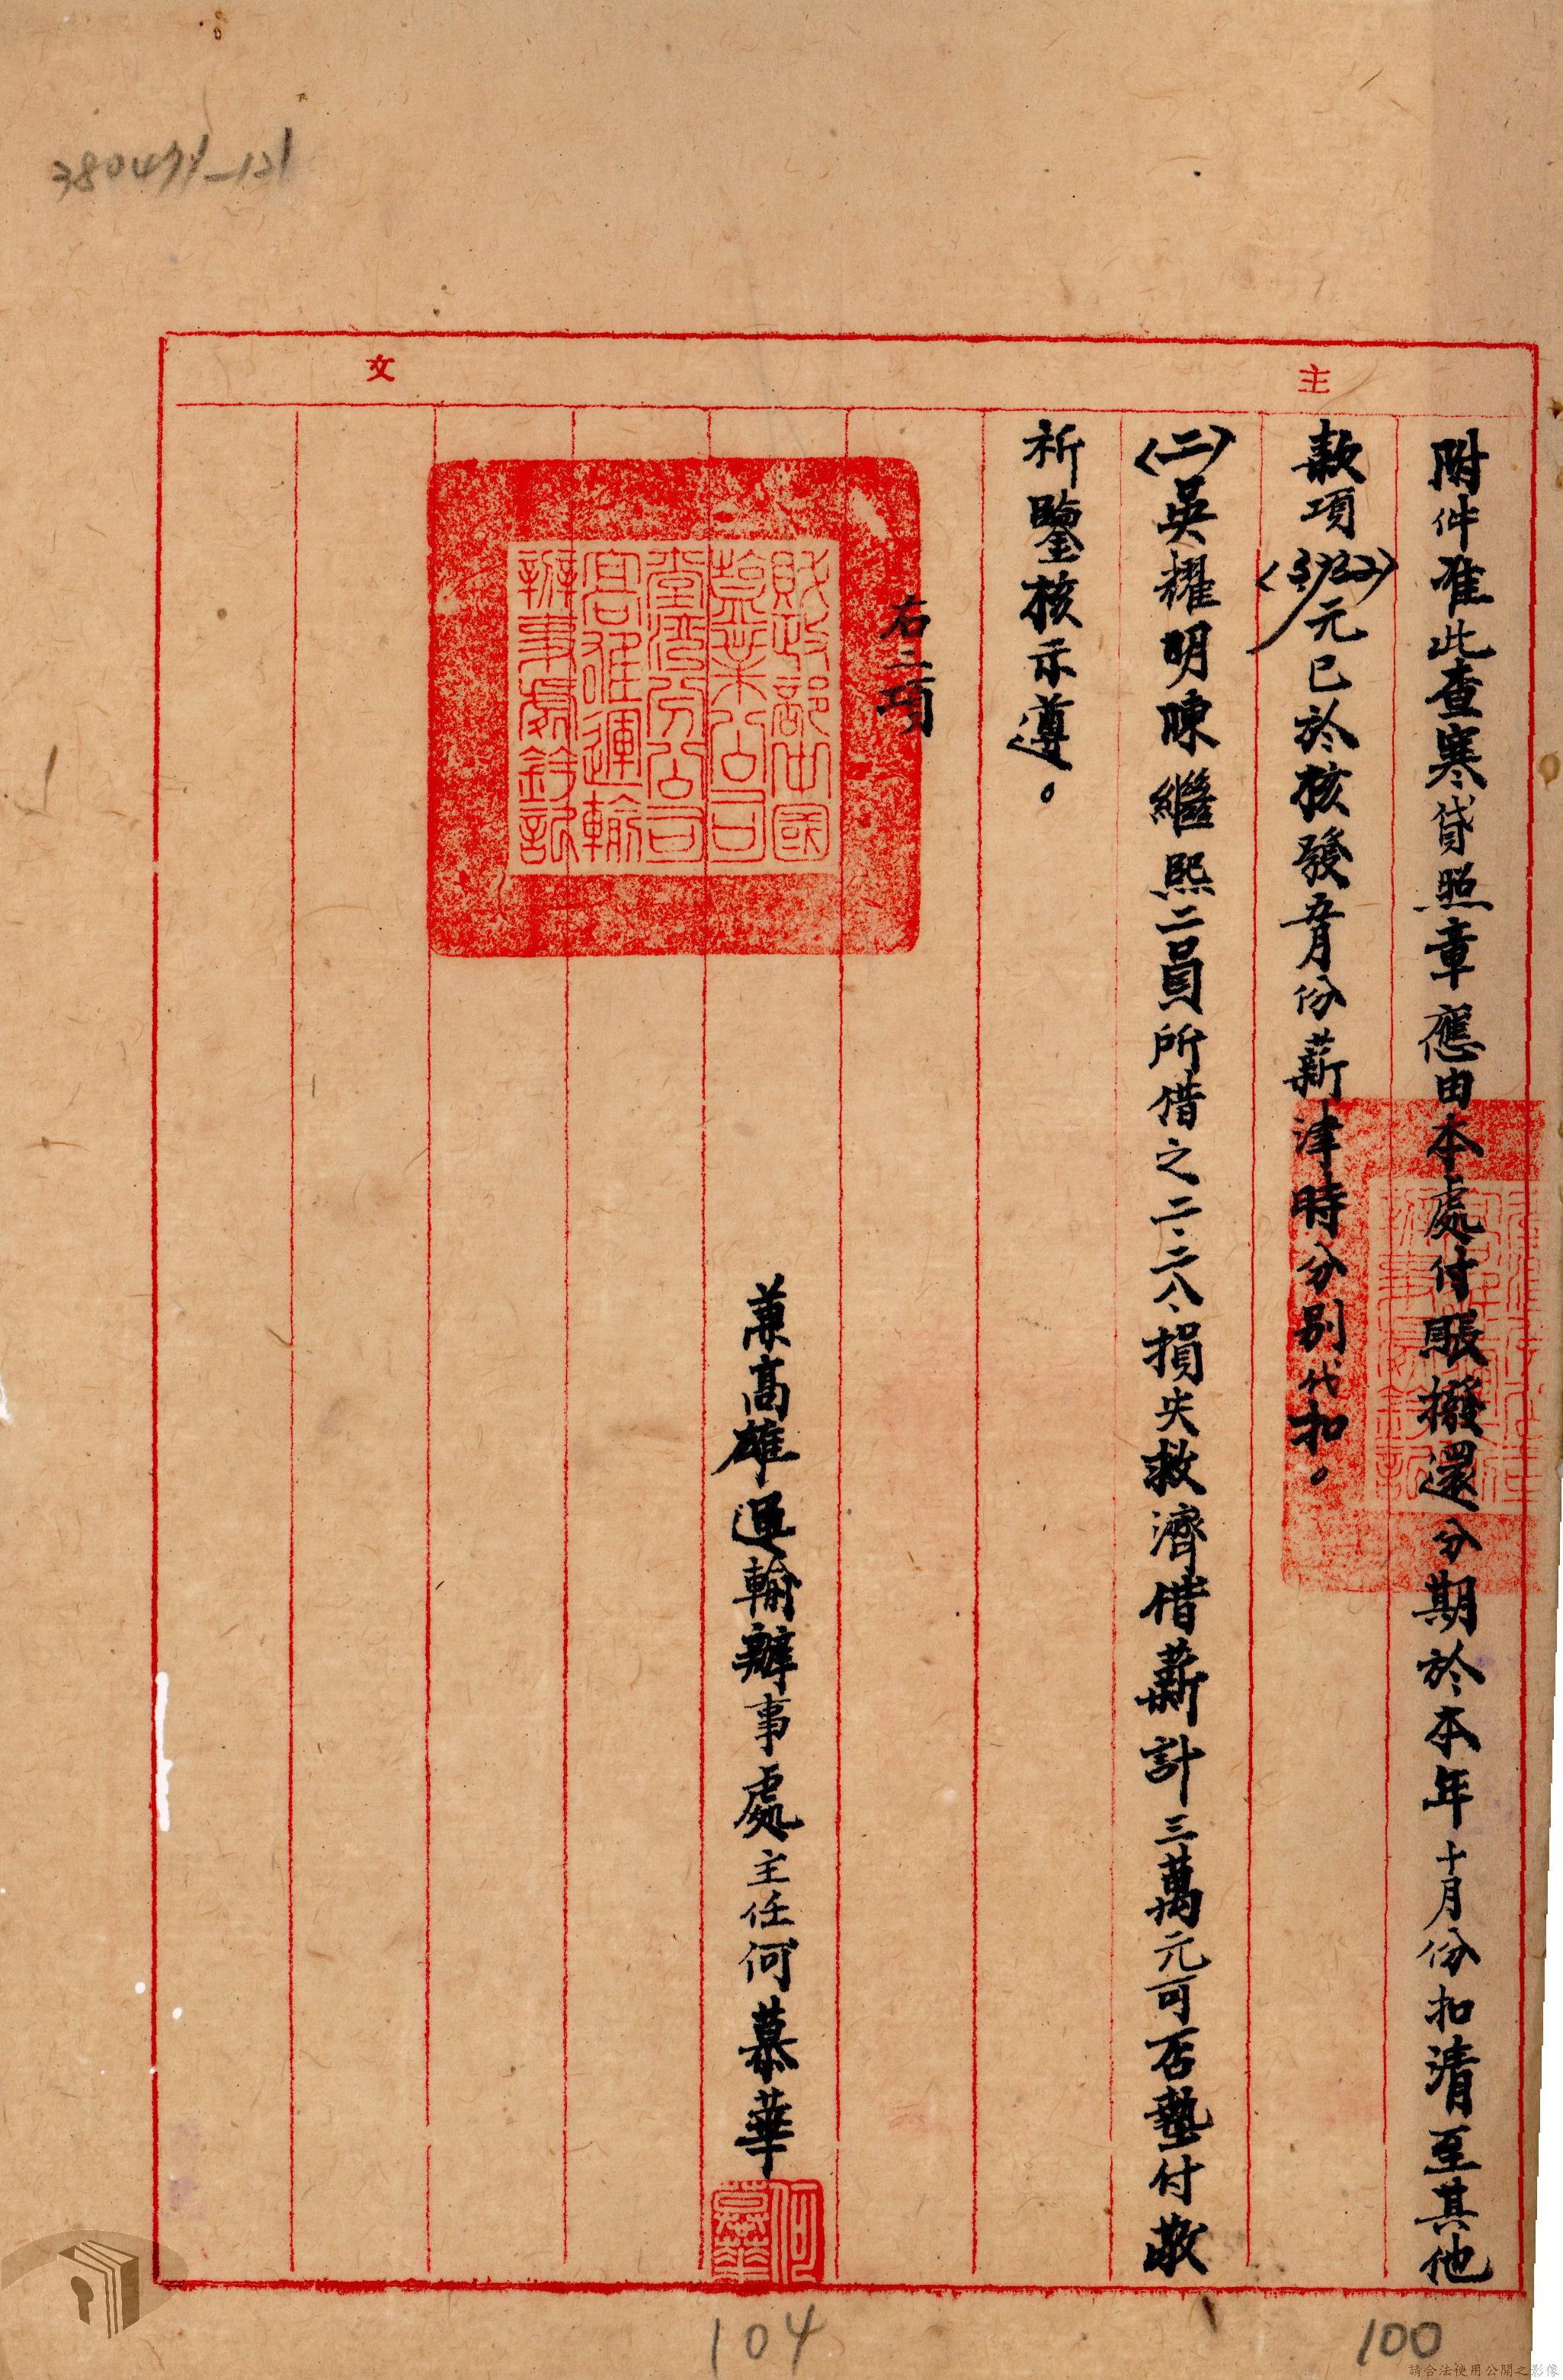 380471-121
主
文
附件准此查寒貸照章應由本處付賬撥還分期於本年十月份扣清至其他
款項(3732)元已於核發五月份薪津時分別代扣。
〈二〉吳耀明陳繼熙二員所借之二、二八、損失救濟借薪計三萬元可否墊付敬
祈鑒核示遵。
右二項
財政部中國
鹽業公司
臺灣分公司
高雄運輸
辦事處鈐記
兼高雄運輸辦事處主任何慕華
何慕華
104
100
請合法使用公開之影像